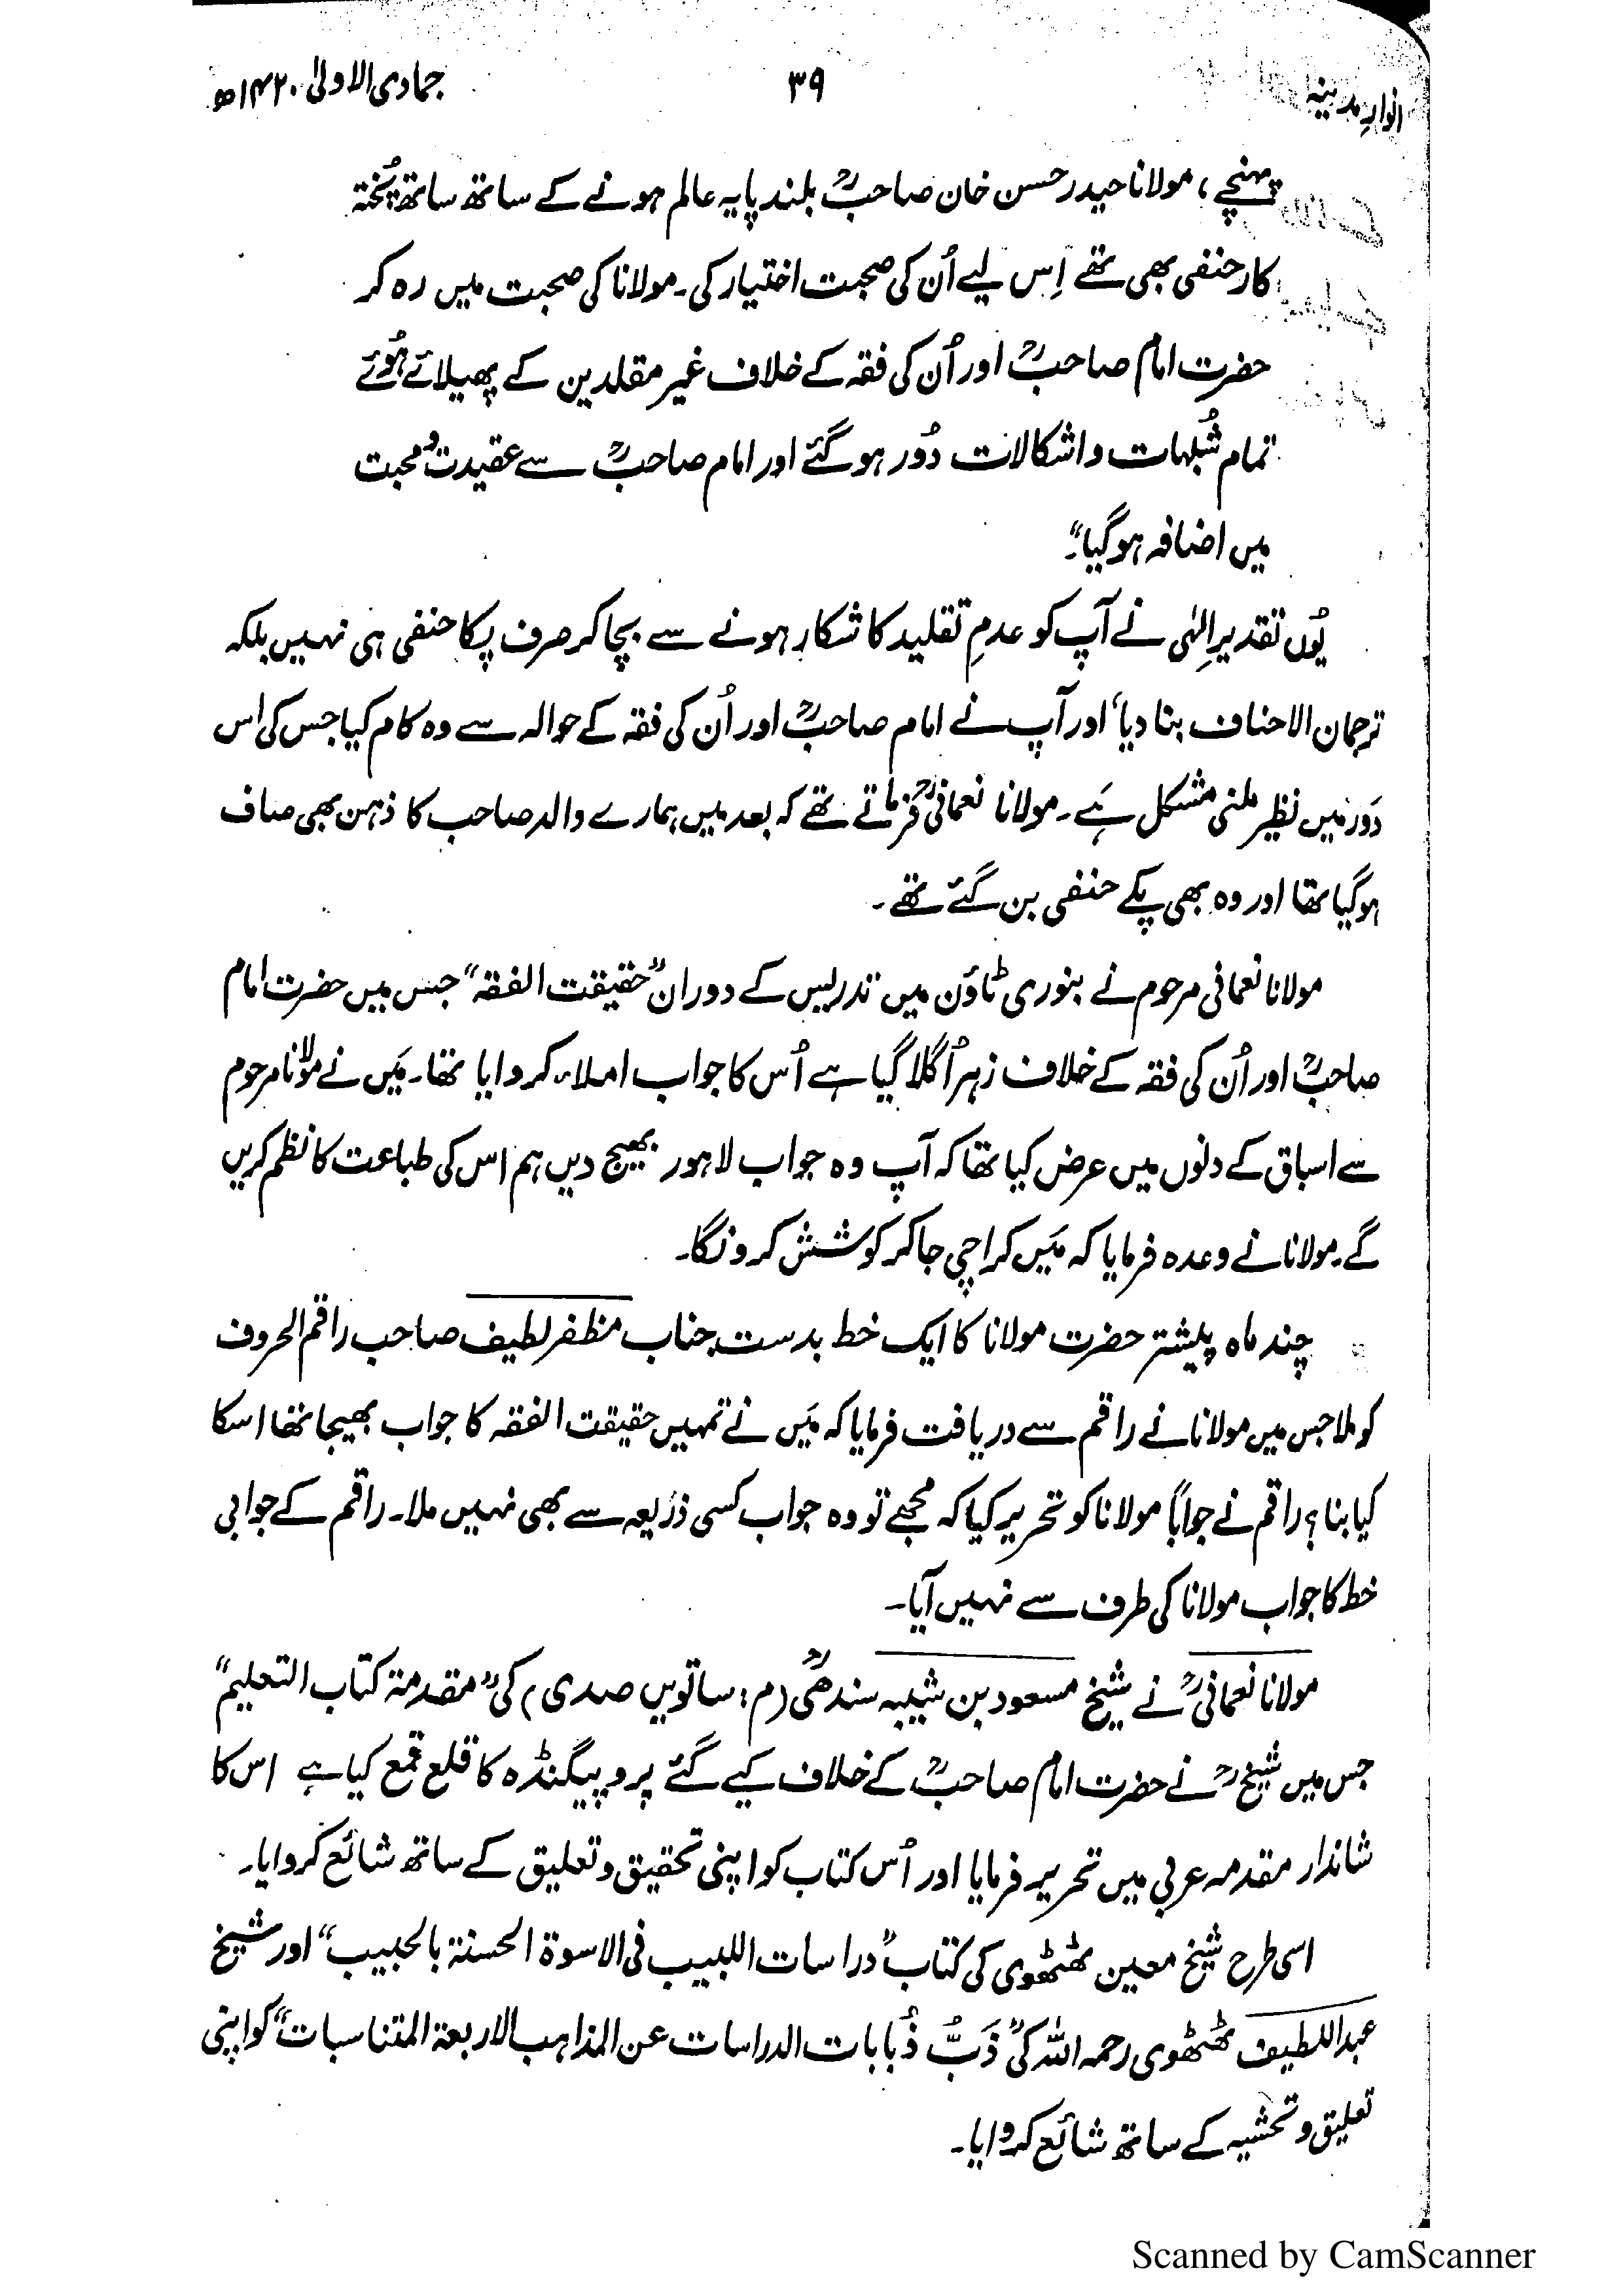 انوارِ مدینہ
۳۹
جمادی الاولیٰ ۱۴۲۰ھ
پہنچے، مولانا حیدر حسن خان صاحبؒ بلند پایہ عالم ہونے کے ساتھ ساتھ پُختہ
کار حنفی بھی تھے اِس لیے اُن کی صحبت اختیار کی۔ مولانا کی صحبت میں رہ کر
حضرت امام صاحبؒ اور اُن کی فقہ کے خلاف غیر مقلدین کے پھیلائے ہُوئے
تمام شُبہات و اشکالات دُور ہو گئے اور امام صاحبؒ سے عقیدت و محبت
میں اضافہ ہو گیا"۔
یُوں تقدیرِ الٰہی نے آپ کو عدمِ تقلید کا شکار ہونے سے بچا کر صرف پکا حنفی ہی نہیں بلکہ
ترجمان الاحناف بنا دیا، اور آپ نے امام صاحبؒ اور اُن کی فقہ کے حوالہ سے وہ کام کیا جس کی اس
دَور میں نظیر ملنی مشکل ہَے۔ مولانا نعمانیؒ فرماتے تھے کہ بعد میں ہمارے والد صاحب کا ذہن بھی صاف
ہو گیا تھا اور وہ بھی پکے حنفی بن گئے تھے۔
مولانا نعمانی مرحوم نے بنوری ٹاؤن میں تدریس کے دوران "حقیقت الفقہ" جس میں حضرت امام
صاحبؒ اور اُن کی فقہ کے خلاف زہر اُگلا گیا ہے اُس کا جواب املاء کروایا تھا۔ مَیں نے مولانا مرحوم
سے اسباق کے دنوں میں عرض کیا تھا کہ آپ وہ جواب لاہور بھیج دیں ہم اس کی طباعت کا نظم کریں
گے۔ مولانا نے وعدہ فرمایا کہ مَیں کراچی جا کر کوشش کرونگا۔
چند ماہ پیشتر حضرت مولانا کا ایک خط بدست جناب مظفر لطیف صاحب راقم الحروف
کو ملا جس میں مولانا نے راقم سے دریافت فرمایا کہ مَیں نے تمہیں حقیقت الفقہ کا جواب بھیجا تھا اسکا
کیا بنا؟ راقم نے جواباً مولانا کو تحریر کیا کہ مجھے تو وہ جواب کسی ذریعہ سے بھی نہیں ملا۔ راقم کے جوابی
خط کا جواب مولانا کی طرف سے نہیں آیا۔
مولانا نعمانیؒ نے شیخ مسعود بن شیبہ سندھیؒ (م: ساتویں صدی) کی "مقدمۃ کتاب التعلیم"
جس میں شیخؒ نے حضرت امام صاحبؒ کے خلاف کیے گئے پروپیگنڈہ کا قلع قمع کیا ہے اس کا
شاندار مقدمہ عربی میں تحریر فرمایا اور اُس کتاب کو اپنی تحقیق و تعلیق کے ساتھ شائع کروایا۔
اسی طرح شیخ معین ٹھٹھوی کی کتاب "دراسات اللبیب فی الاسوۃ الحسنۃ بالحبیب" اور شیخ
عبداللطیف ٹھٹھوی رحمہ اللہ کی "ذَبُّ ذُبابات الدراسات عن المذاہب الاربعۃ المتناسبات" کو اپنی
تعلیق و تحشیہ کے ساتھ شائع کروایا۔
Scanned by CamScanner